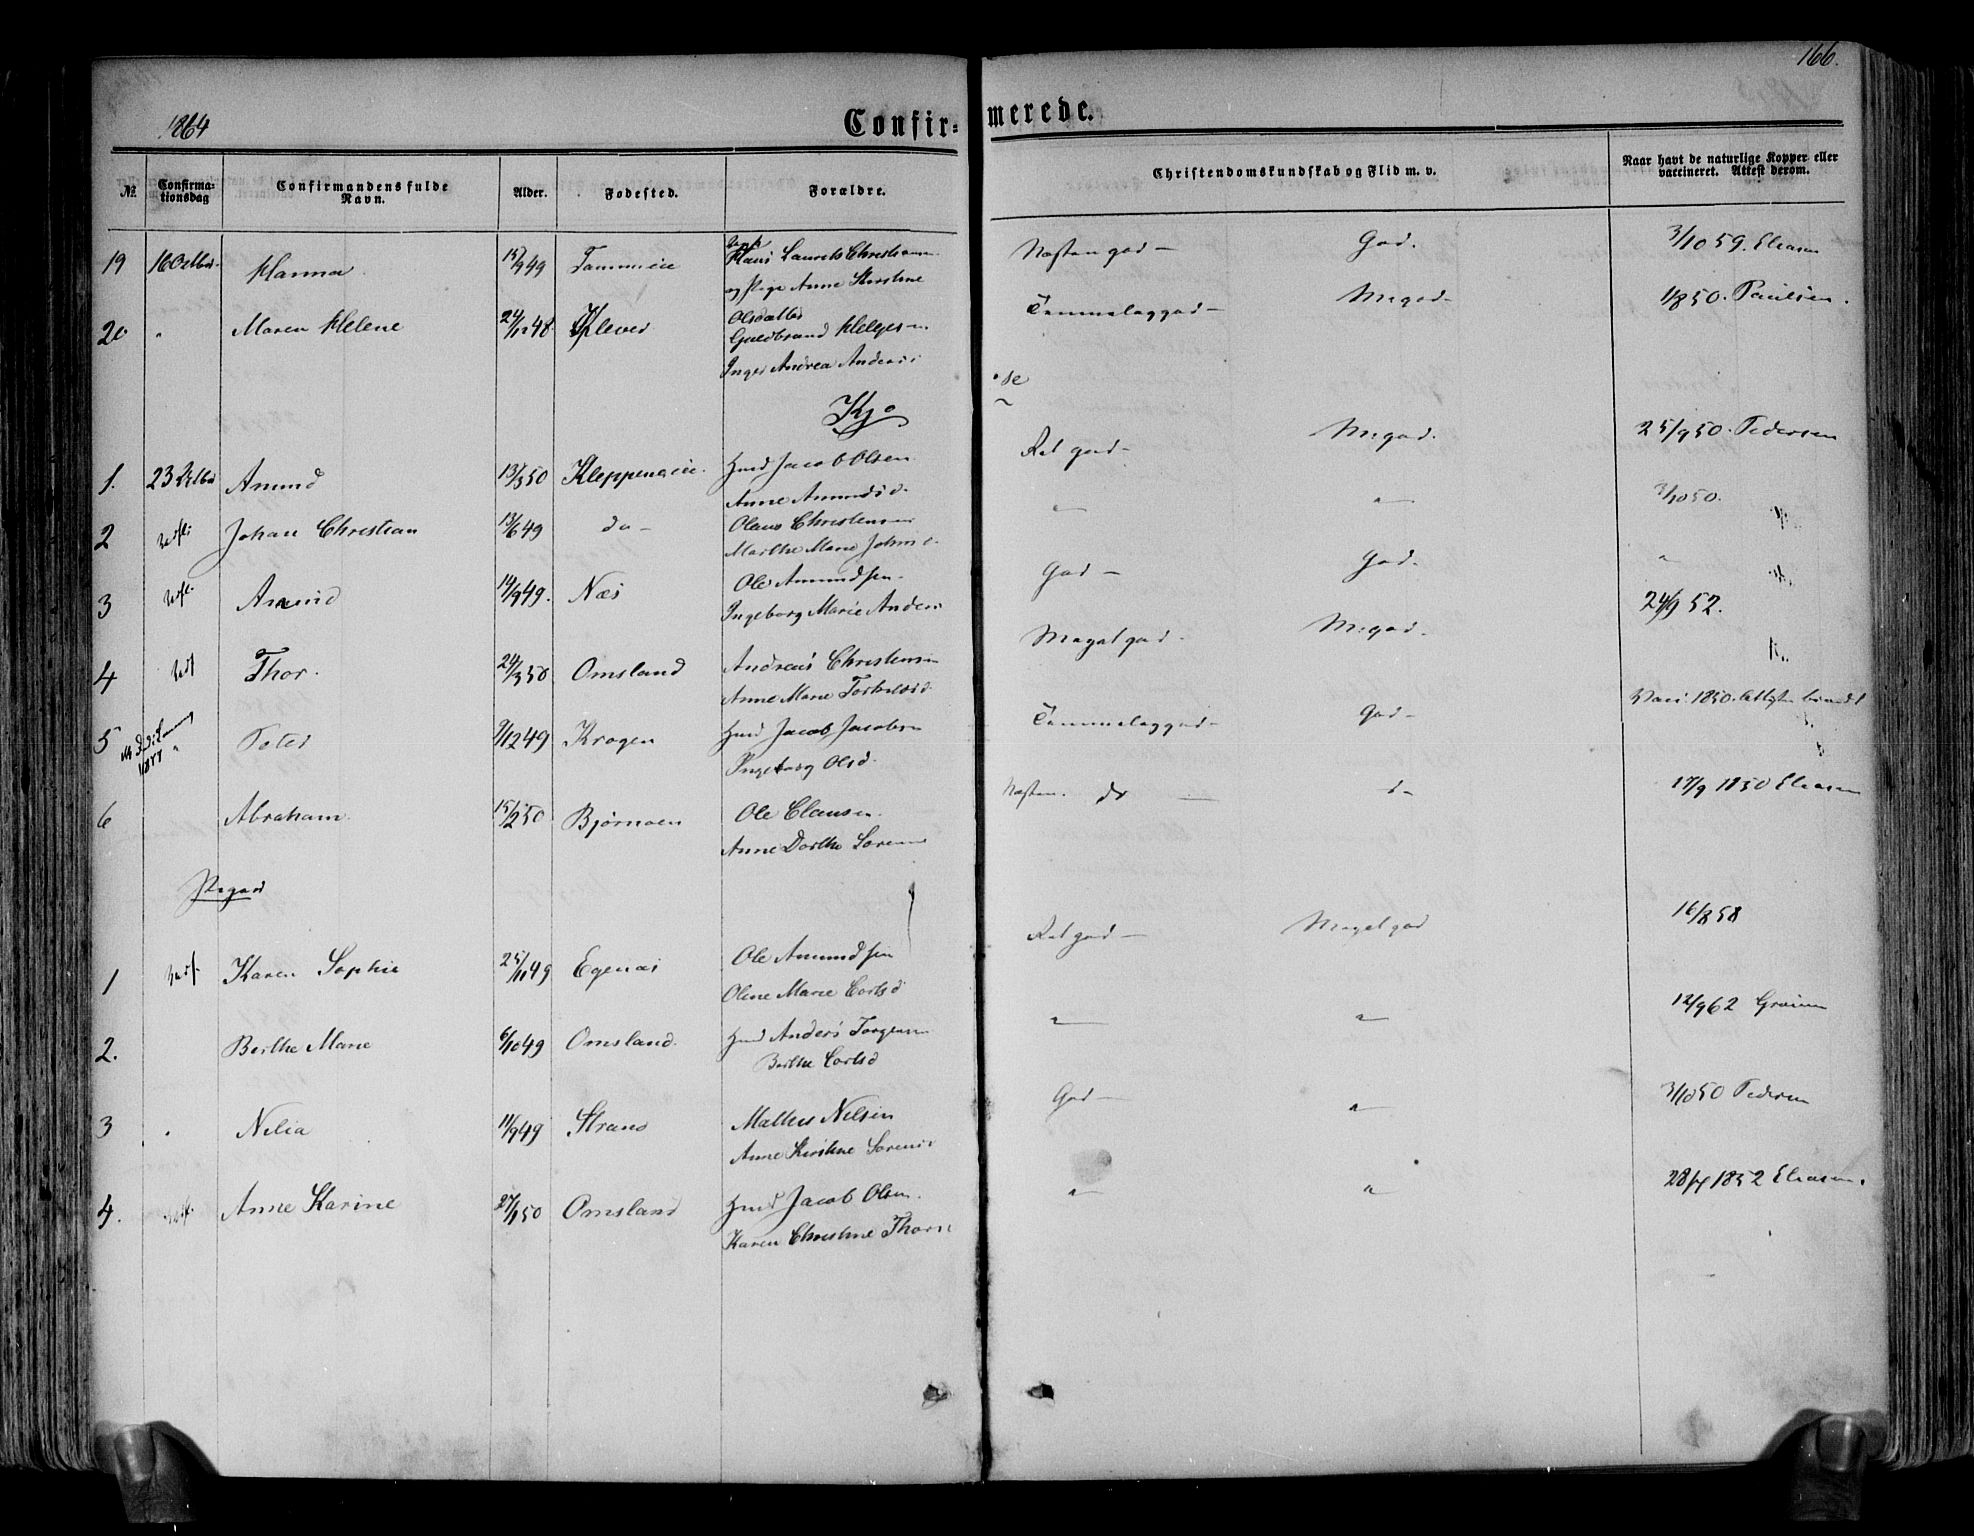 166.
1864
Confir- merede.
№
Confirmationsdag
Confirmandens fulde Navn.
Alder.
Fødested.
Forældre.
Christendomskundskab og Flid m. v.
Naar havt de naturlige Kopper eller vaccineret. Attest derom.
19 16 Octbr. Hanna 15/9 49 Hans Laurits Christiansen Næsten god — God. 3/10 59. Eliasen
og Pige Anne Kirstine
20 " Maren Helene 24/12 48 Klever Olsdatter Temmelig god — M. god — 1/8 50. Paulsen.
Guldbrand Helgesen
Inger Andrea Anders
Kjø se
1. 23 Octbr Amund 13/3 50 Kleppeneie. Hmd Jacob Olsen Ret god — M. god. 25/9 50. Pedersen
Anne Amundsd.
2 Johan Christian 13/6 49 do — Olaus Christensen " " 3/10 50.
Marthe Marie Johns
3 Amund 14/9 49. Næs Ole Amundsen God — God. "
Ingeborg Marie Anders 24/9 52.
4 Thor. 24/3 50 Omsland Andreas Christensen Meget god. M. god.
Anne Marie
5 Peter 9/12 49 Krogen Hmd Jacob Jacobsen Temmelig god — God — Vacc. 1850.
Ingeborg Olsd.
6 Abraham 15/2 50 Bjørnoen Ole Clausen. Næsten do — do 17/9 1850 Eliasen
Anne Dorthe Sørens
Piger
1 Karen Sophie 25/11 49 Egenæs Ole Amundsen Ret god — Meget god 16/8 58
Olene Marie Carlsd
2. Berthe Marie 6/10 49 Omsland. Hmd Anders Torgersen " " 12/9 62
Berthe Carlsd
3 " Nilia 11/9 49 Strand Mathis Nilsen God — " 3/10 50 Pedersen
Anne Kirstine Sørensd
4. Anne Karine 27/1 50 Omsland Hmd Jacob Olsen. " " 28/4 1852 Eliasen.
Karen Christine Thors